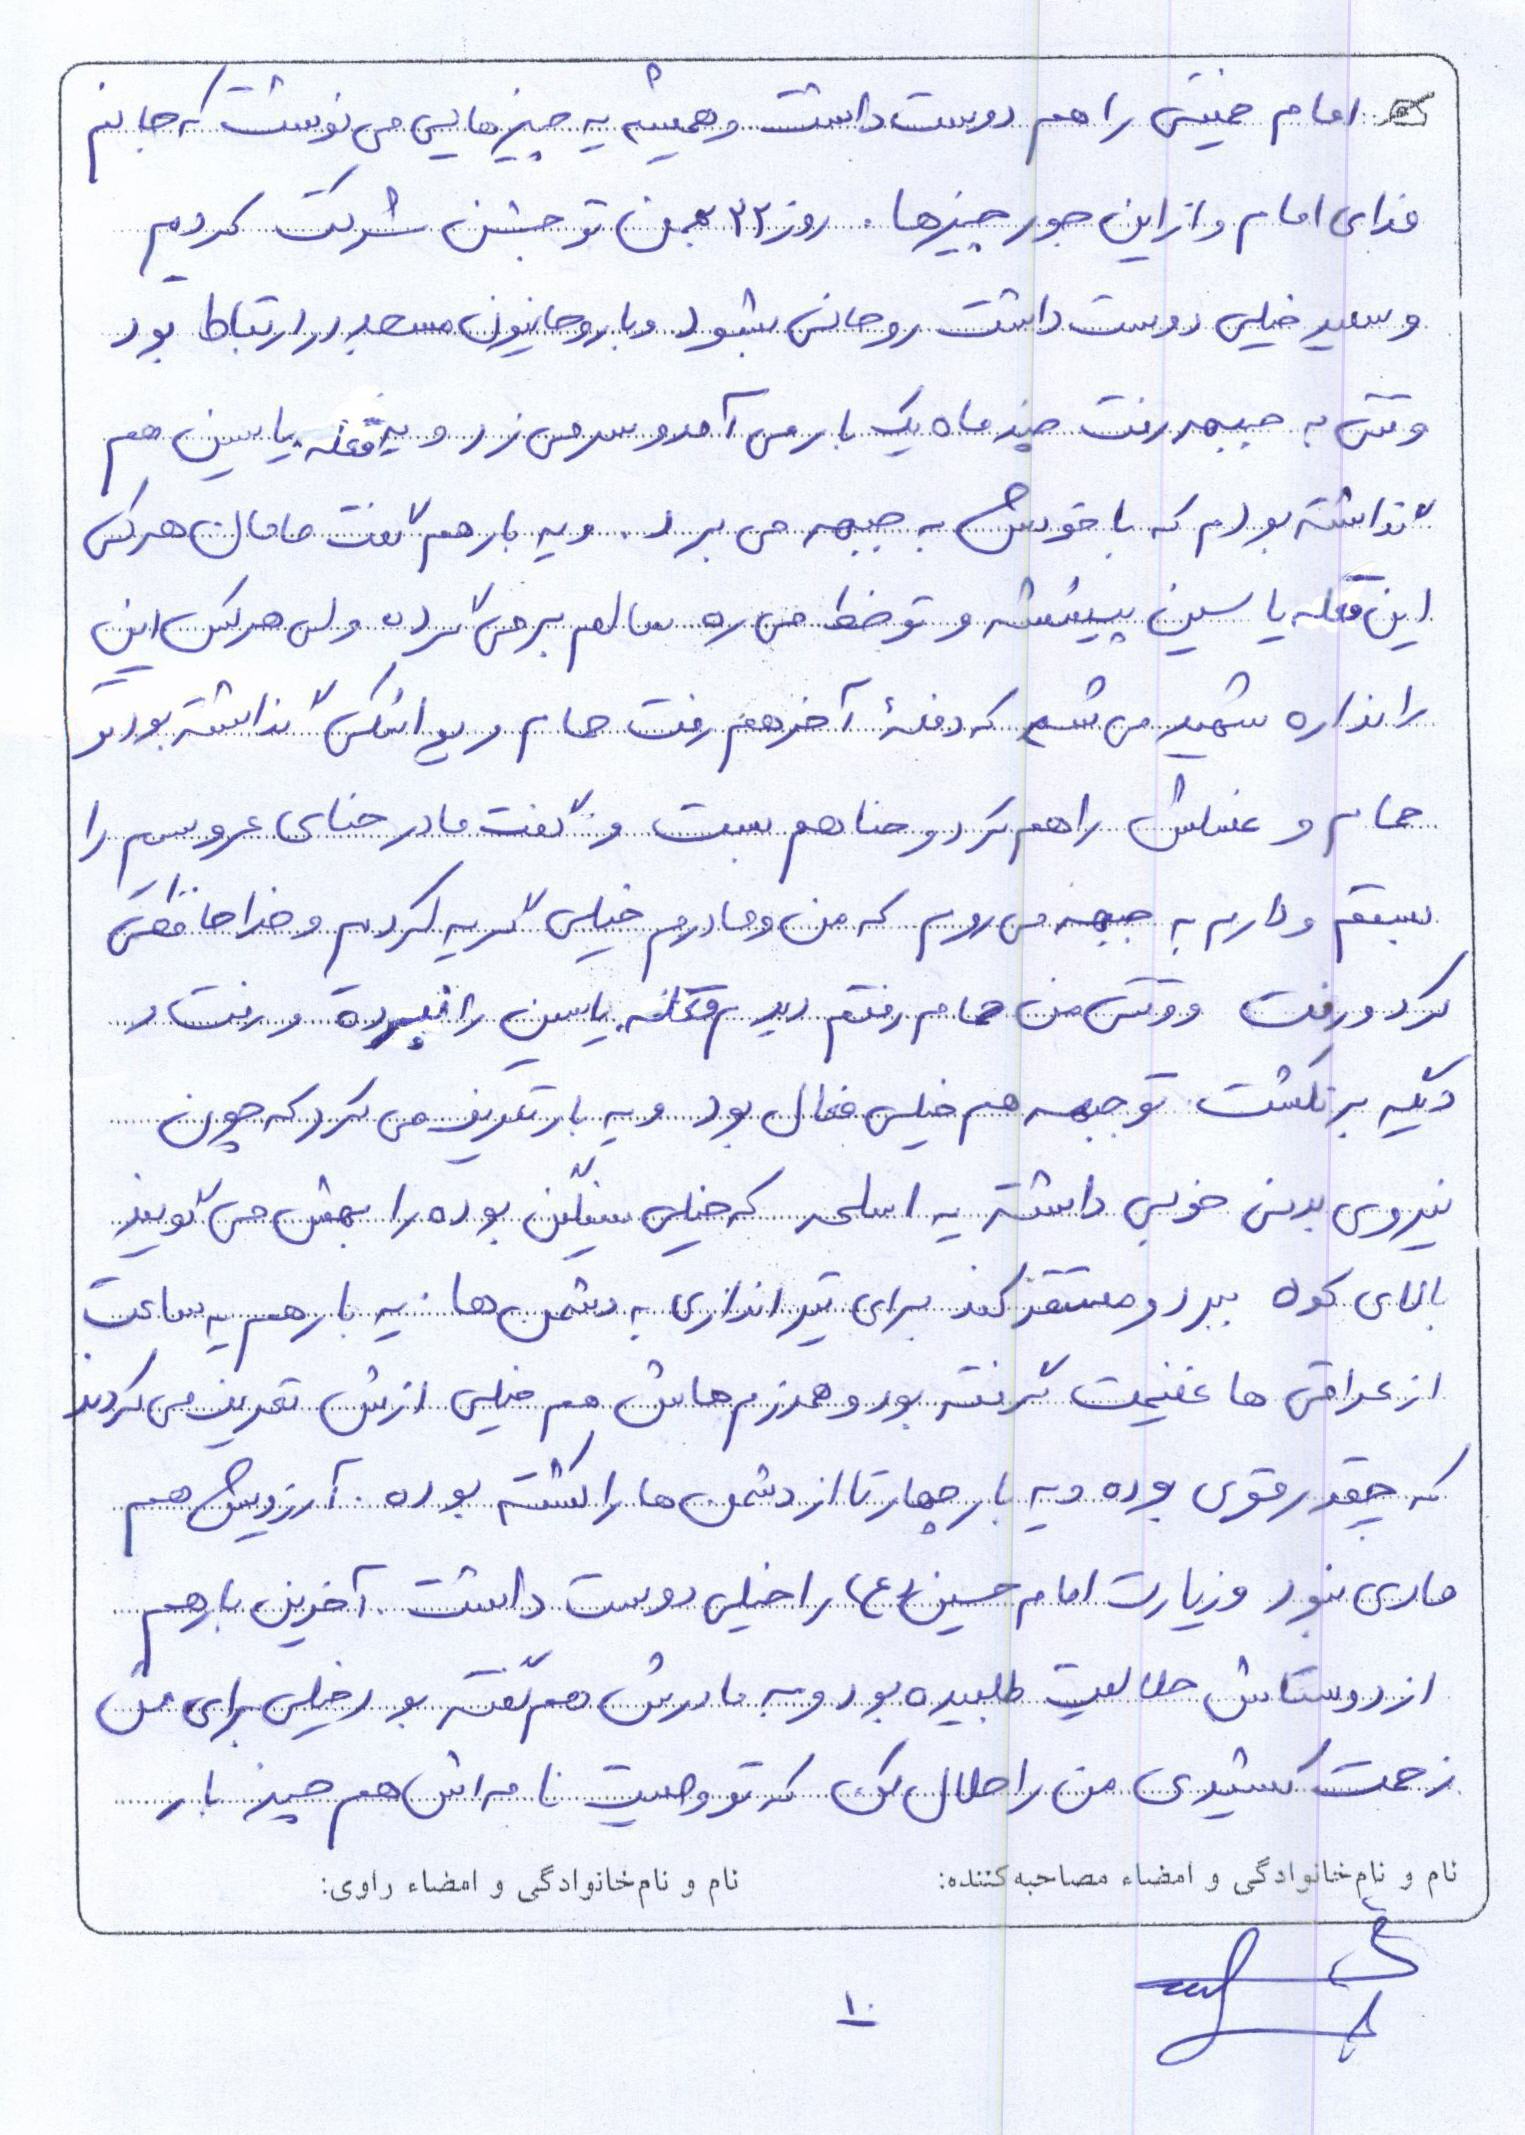 امام خمینی را هم دوست داشت و همیشه یه چیزهایی می نوشت که جانم
فدای امام و از این جور چیزها. روز ۲۲ بهمن تو جشن شرکت کردیم
و سعید خیلی دوست داشت روحانی بشود و با روحانیون مسجد در ارتباط بود
وقتی به جبهه رفت چند ماه یک بار می آمد و سر می زد و یه قلعه یاسین هم
گذاشته بودم که با خودش به جبهه می برد. و یه بار هم گفت مامان هرکس
این قلعه یاسین پیشش و تو خط می ره سالم برمی گرده ولی هرکس این
را نداره شهید می شه که دفعهٔ آخر هم رفت حمام و یواشکی گذاشته بود تو
حمام و غسلش را هم کرد و حنا هم بست و گفت مادر حنای عروسیم را
بستم و دارم به جبهه می روم که من و مادرم خیلی گریه کردیم و خداحافظی
کرد و رفت و وقتی من حمام رفتم دیدم قلعه یاسین را نبرده و رفت و
دیگه برنگشت. تو جبهه هم خیلی فعال بود و یه بار تعریف می کرد که چون
نیروی بدنی خوبی داشته یه اسلحه که خیلی سنگین بوده را بهش می گویند
بالای کوه ببرد و مستقر کند برای تیراندازی به دشمن ها. یه بار هم یه ساعت
از عراقی ها غنیمت گرفته بود و همرزم هاش هم خیلی ازش تعریف می کردند
که چقدر قوی بوده و یه بار چهار تا از دشمن ها را کشته بوده. آرزویش هم
مادی نبود و زیارت امام حسین (ع) را خیلی دوست داشت. آخرین بار هم
از دوستاش حلالیت طلبیده بود و به مادرش هم گفته بود خیلی برای من
زحمت کشیدی من را حلال کن که تو وصیت نامه اش هم چند بار
نام و نام‌خانوادگی و امضاء مصاحبه‌کننده:
نام و نام‌خانوادگی و امضاء راوی:
۱۰